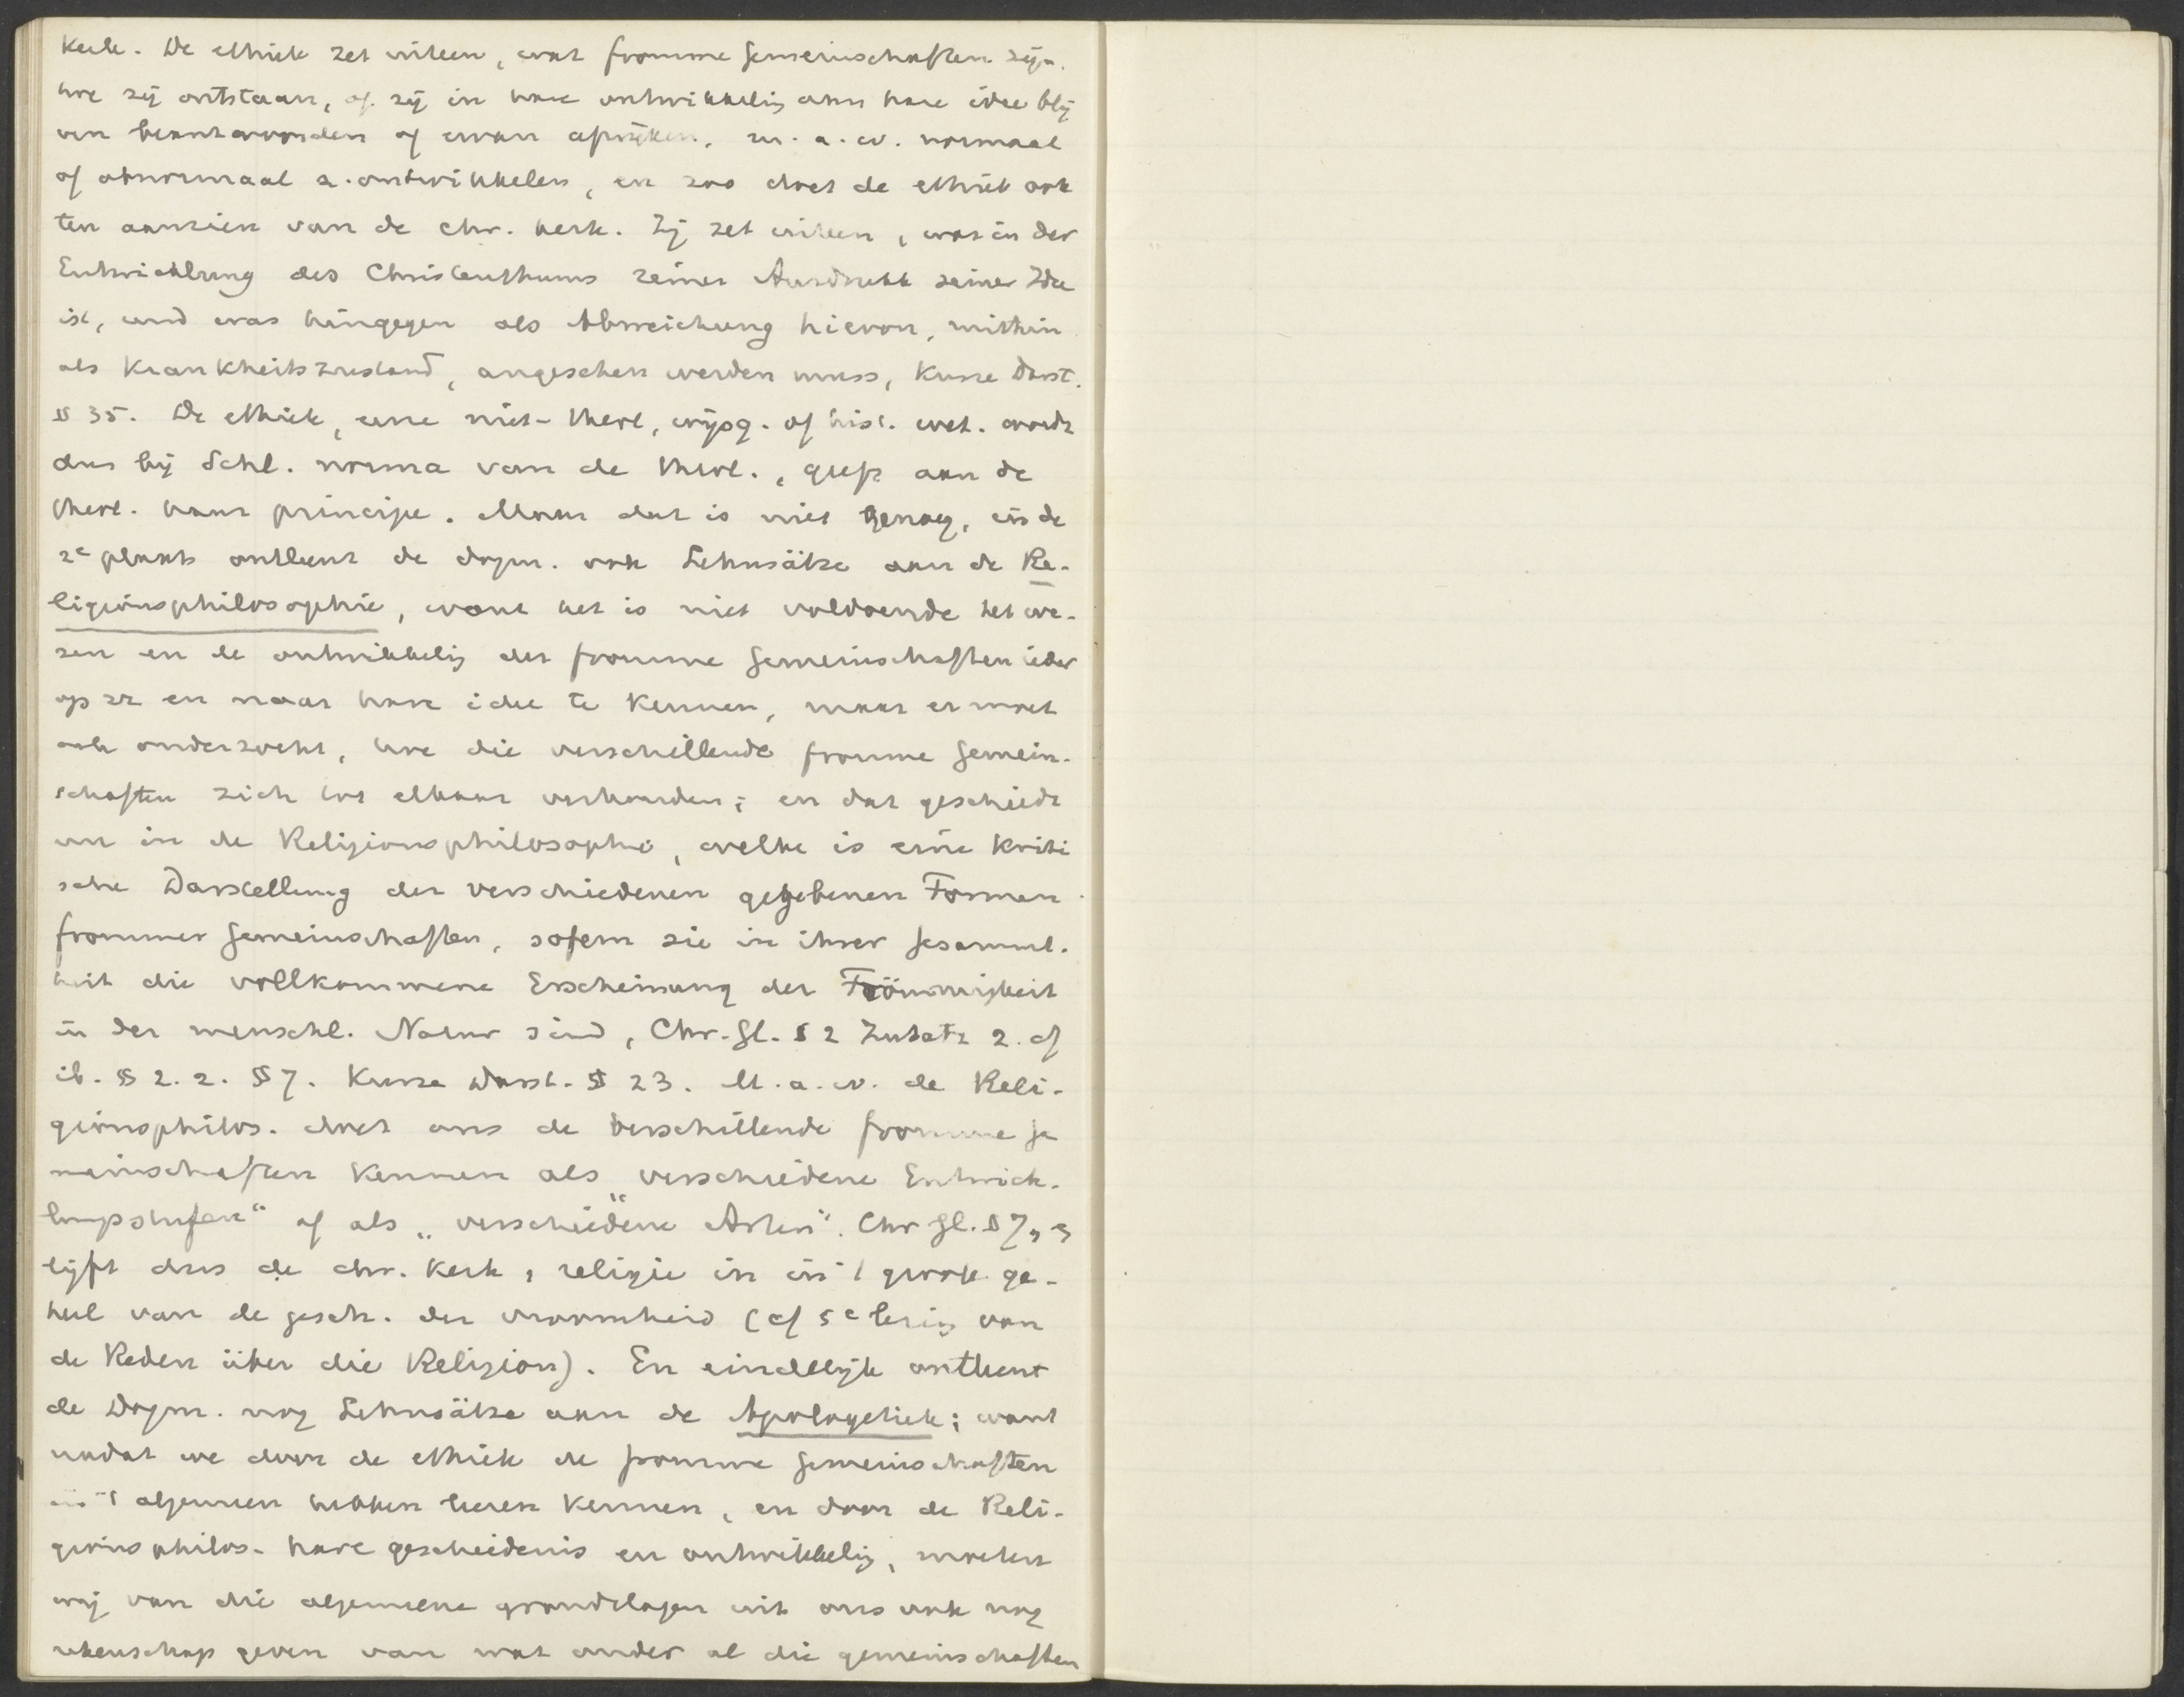 kerk. De ethiek zet uiteen, wat fromme Gemeinschaften zijn.
hoe zij ontstaan, of zij in hare ontwikkelig aan hare idee blij
ven beantwoorden of ervan afwijken, m. a. w. normaal
of abnormaal z. ontwikkelen, en zoo doet de ethiek ook
ten aanzien van de chr. kerk. Zij zet uiteen, was in der
Entwicklung des Christenthums reiner Ausdrukk seiner Idee
ist, und was hingegen als Abweichung hievon, mithin
als Krankheitszustand, angesehen werden muss, Kurze Darst.
§ 35. De ethiek, eene niet-theol, wijsg. of hist. wet. wordt
dus bij Schl. norma van de theol., geeft aan de
theol. haar principe. Maar dat is niet genoeg, in de
2e plaats ontleent de dogm. ook Lehnsätze aan de Re-
ligionsphilosophie, want het is niet voldoende het we-
zen en de ontwikkelig der fromme Gemeinschaften ieder
op zz en naar hare idee te kennen, maar er moet
ook onderzocht, hoe die verschillende fromme Gemein-
schaften zich tot elkaar verhouden; en dat geschiedt
nu in de Religionsphilosophie, welke is eine kriti
sche Darstellung der verschiedenen gegebenen Formen
frommer Gemeinschaften, sofern sie in ihrer Gesammt-
heit die vollkommene Erscheinung der Frömmigkeit
in der menschl. Natur sind, Chr. Gl. § 2 Zusatz 2. cf
ib. § 2. 2. § 7. Kurze Darst. § 23. M. a. w. de Reli-
gionsphilos. doet ons de verschillende fromme Ge
meinschaften kennen als „verschiedene Entwick-
lungsstufen“ of als „verschiedene Arten“. Chr Gl. § 7, 3
lijft dus de chr. kerk, religie in in 't groote ge-
heel van de gesch. der vroomheid (cf 5e lezig van
de Reden über die Religion). En eindelijk ontleent
de Dogm. nog Lehnsätze aan de Apologetiek; want
nadat we door de ethiek de fromme Gemeinschaften
in 't algemeen hebben leeren kennen, en door de Reli-
gionsphilos. hare geschiedenis en ontwikkelig, moeten
wij van die algemeene grondslagen uit ons ook nog
rekenschap geven van wat onder al die gemeinschaften